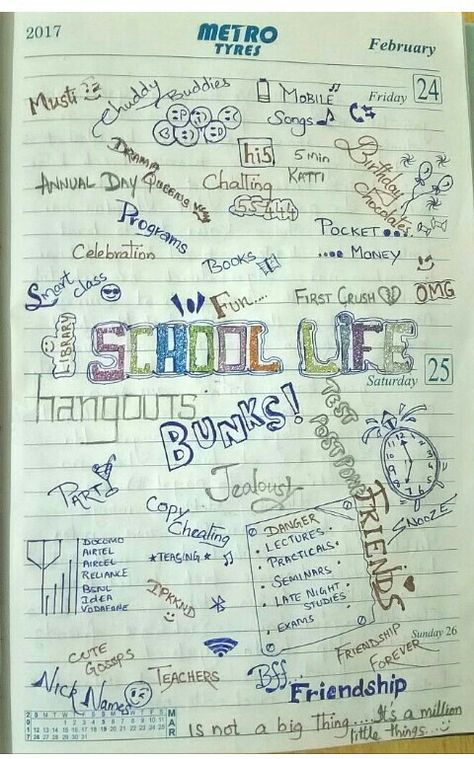 2017
METRO
TYRES
February
Friday 24
Musti
Chuddy Buddies
MOBILE
Songs
DRAMA
QUEENS
his
5 MIN
KATTI
Birthday
Chocolates
ANNUAL DAY
Chatting
Programs
POCKET...
.... MONEY
Celebration
BOOKS
Smart
class
Fun....
FIRST CRUSH
OMG
LIBRARY
SCHOOL LIFE
Saturday 25
hangouts
BUNKS!
TEST
POSTPONE
PARTY
Jealousy
Copy
Cheating
FRIENDS
SNOOZE
DOCOMO
AIRTEL
AIRCEL
RELIANCE
BSNL
IDEA
VODAFONE
*TEASING*
DANGER
• LECTURES
• PRACTICALS
• SEMINARS
• LATE NIGHT
STUDIES
• EXAMS
IPKKND
Sunday 26
CUTE
GOSSPS
TEACHERS
BSf...
FRIENDSHIP
FOREVER
Nick Names
Friendship
IS not a big thing.... It's a million
little things...
MAR